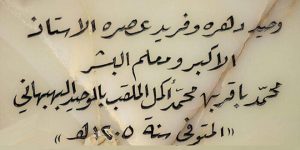 وحيد دهره وفريد عصره الاستاذ
الاكبر ومعلم البشر
محمّد باقر بن محمّد أكمل الملقب بالوحيد البهبهاني
«المتوفى سنة ١٢٠٥هـ»